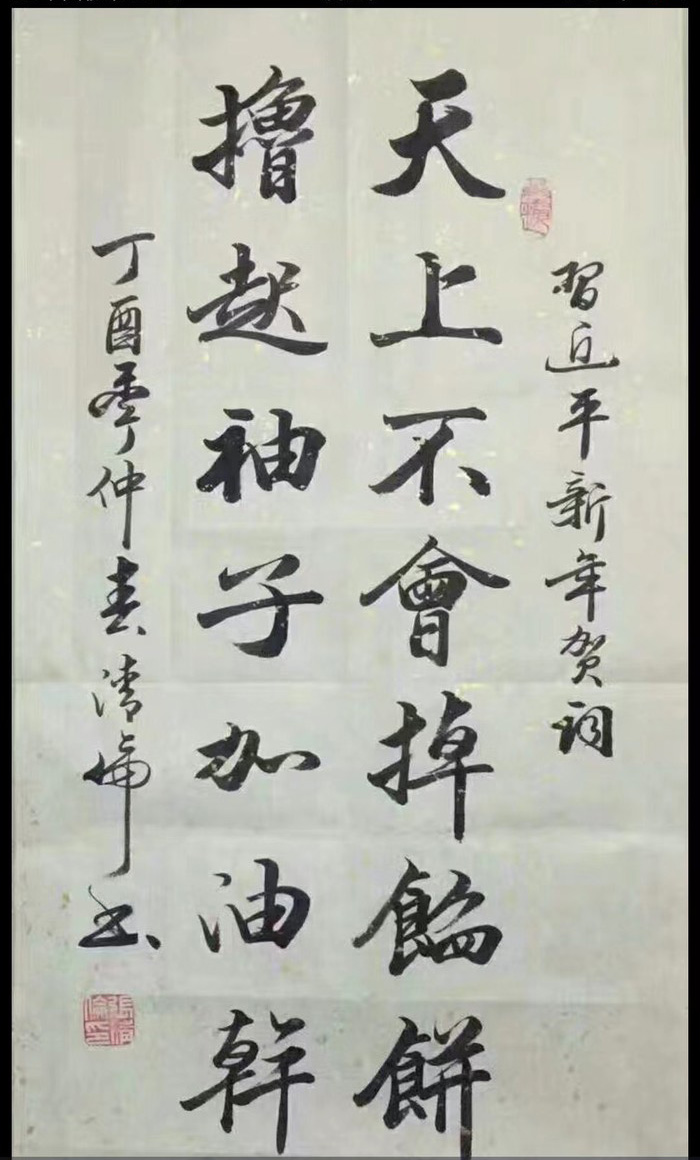 習近平新年贺词
天上不會掉餡餅
擼起袖子加油幹
丁酉年仲春清书